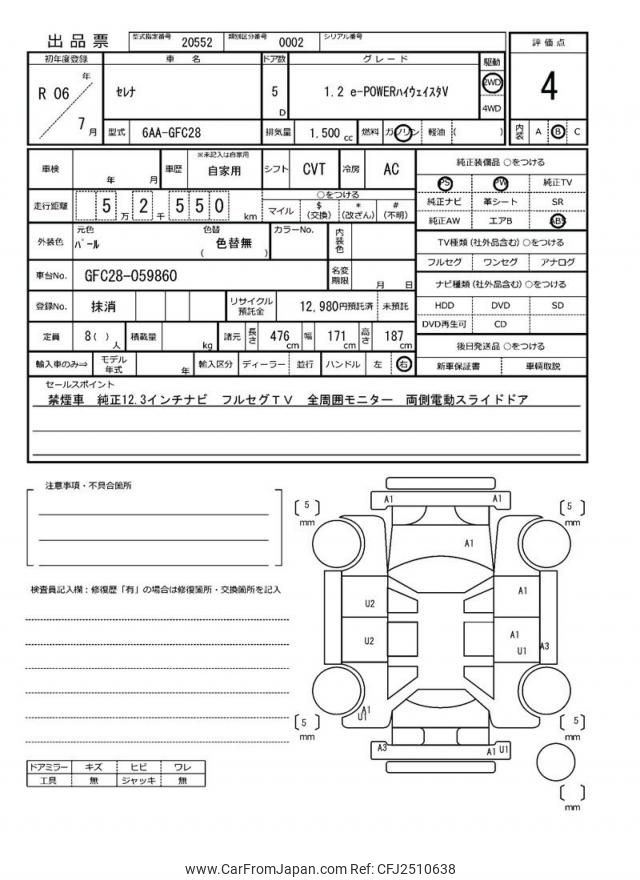 出品票 型式指定番号 20552 類別区分番号 0002 シリアル番号
初年度登録 車名 ドア数 グレード 駆動 評価点
R 06 年 7月 セレナ 5 D 1.2 e-POWERハイウェイスタV 2WD 4WD 4
型式 6AA-GFC28 排気量 1.500 cc 燃料 ガソリン 軽油 ( ) 内装 A B C
車検 年 月 車歴 ※未記入は自家用 自家用 シフト CVT 冷房 AC
走行距離 5万2千550 km ○をつける
マイル $(交換) *(改ざん) #(不明)
外装色 元色 パール 色替 ( 色替無 ) カラーNo. 内装色
車台No. GFC28-059860 名変期限 月 日
登録No. 抹消 リサイクル預託金 12,980円預託済 未預託
定員 8( )人 積載量 kg 諸元 長さ 476cm 幅 171cm 高さ 187cm
輸入車のみ⇒ モデル年式 年 輸入区分 ディーラー 並行 ハンドル 左 右
純正装備品 ○をつける
PS PW 純正TV
純正ナビ 革シート SR
純正AW エアB ABS
TV種類(社外品含む)○をつける
フルセグ ワンセグ アナログ
ナビ種類(社外品含む)○をつける
HDD DVD SD
DVD再生可 CD
後日発送品 ○をつける
新車保証書 車輌取説
セールスポイント
禁煙車 純正12.3インチナビ フルセグTV 全周囲モニター 両側電動スライドドア
注意事項・不具合箇所
検査員記入欄：修復歴「有」の場合は修復箇所・交換箇所を記入
ドアミラー キズ ヒビ ワレ
工具 無 ジャッキ 無
A1 A1
5 mm 5 mm
A1
U2 A1
U2 A1 U1 A3
A1 U1
5 mm 5 mm
A3 A1 U1
mm
www.CarFromJapan.com Ref: CFJ2510638